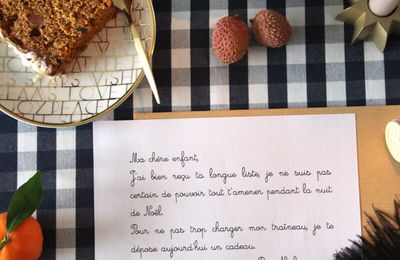 Ma chère enfant,
J'ai bien reçu ta longue liste, je ne suis pas
certain de pouvoir tout t'amener pendant la nuit
de Noël.
Pour ne pas trop charger mon traîneau, je te
dépose aujourd'hui un cadeau.